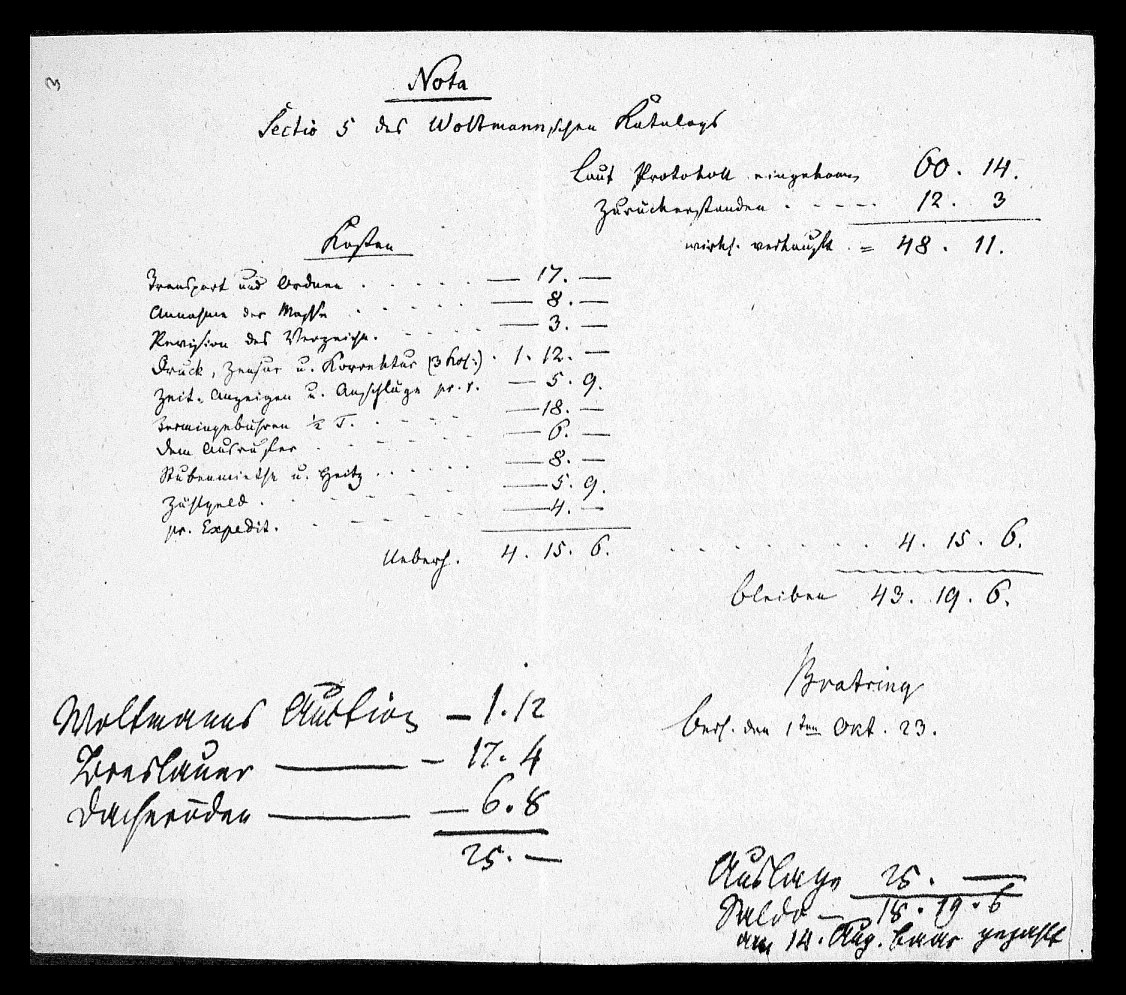 3
Nota
Sectio 5 des Woltmannschen Katalogs
Laut Protokoll eingekom, 60. 14.
Zurückerstanden - - - - 12. 3
wirkl. verkauft. = 48. 11.
Kosten
Transport und Ordnen . . . . . — 17. —
Annahme der Masse . . . . . — 8. —
Revision des Verzeichn. . . . . — 3. —
Druck, Zensur u. Korrektur (3 Kol:) . 1. 12. —
Zeit. Anzeigen u. Anschläge pr. r. — 5. 9.
Termingebühren ½ T. . . . . — 18. —
dem Ausrufer . . . . — 6. —
Stubenmiethe u. Heitz . . . . . — 8. —
Zählgeld . . . . . — 5. 9.
pr. Expedit. . . . . . — 4. —
Ueberh. 4. 15. 6. . . . . . . . 4. 15. 6.
bleiben 43. 19. 6.
Bratring
Berl. den 1ten Okt. 23.
Woltmanns Auction — 1. 12
Breslauer — — 17. 4
Dacheröden — — 6. 8
25. —
Auslage 25. —
Saldo — 18. 19. 6
am 14. Aug. baar gezahlt